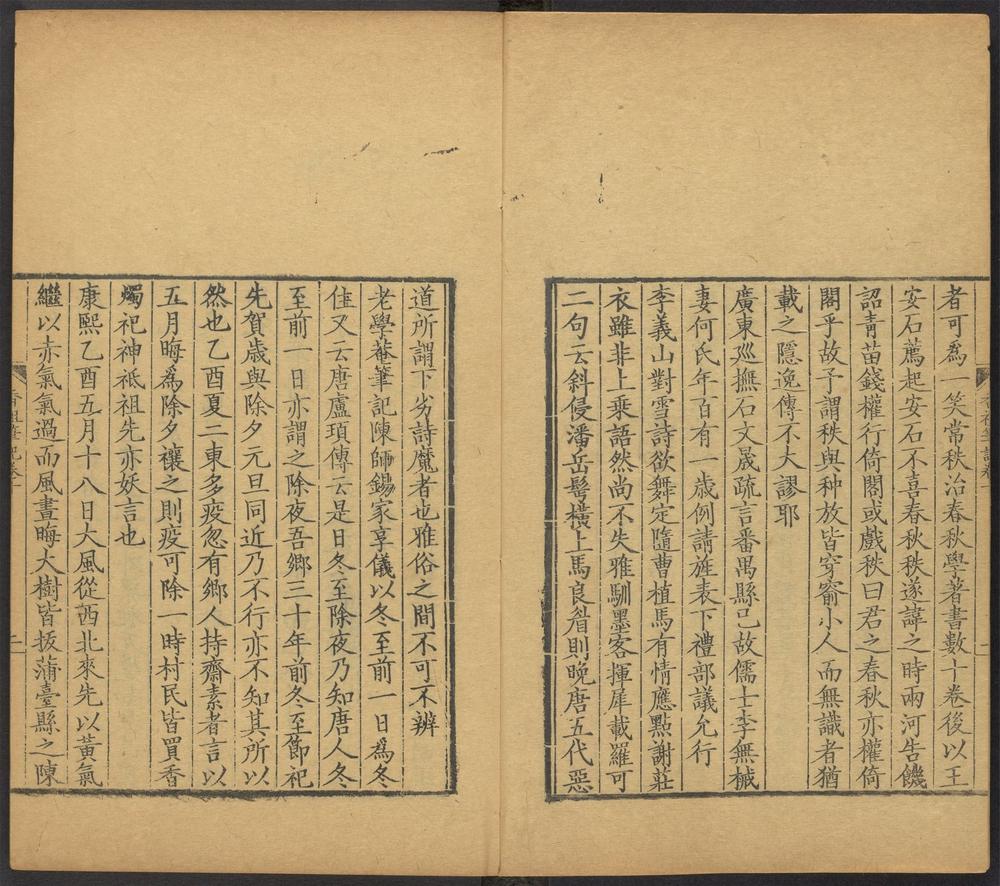 者可爲一笑常秩治春秋學著書數十卷後以王
安石薦起安石不喜春秋秩遂諱之時兩河告饑
詔青苗錢權行倚閣或戲秩曰君之春秋亦權倚
閣乎故予謂秩與种放皆穿窬小人而無識者猶
載之隱逸傳不大謬耶
廣東廵撫石文晟疏言番禺縣已故儒士李無㭜
妻何氏年百有一歲例請旌表下禮部議允行
李義山對雪詩欲舞定隨曹植馬有情應點謝莊
衣雖非上乗語然尚不失雅馴墨客揮犀載羅可
二句云斜侵潘岳髩橫上馬良眉則晚唐五代惡
道所謂下劣詩魔者也雅俗之間不可不辨
老學菴筆記陳師錫家享儀以冬至前一日爲冬
住又云唐盧頊傳云是日冬至除夜乃知唐人冬
至前一日亦謂之除夜吾鄉三十年前冬至節祀
先賀歲與除夕元旦同近乃不行亦不知其所以
然也乙酉夏二東多疫忽有鄉人持齋素者言以
五月晦爲除夕禳之則疫可除一時村民皆買香
燭祀神祗祖先亦妖言也
康熙乙酉五月十八日大風從西北來先以黃氣
繼以赤氣氣過而風晝晦大樹皆拔蒲臺縣之陳
香祖筆記卷一
二